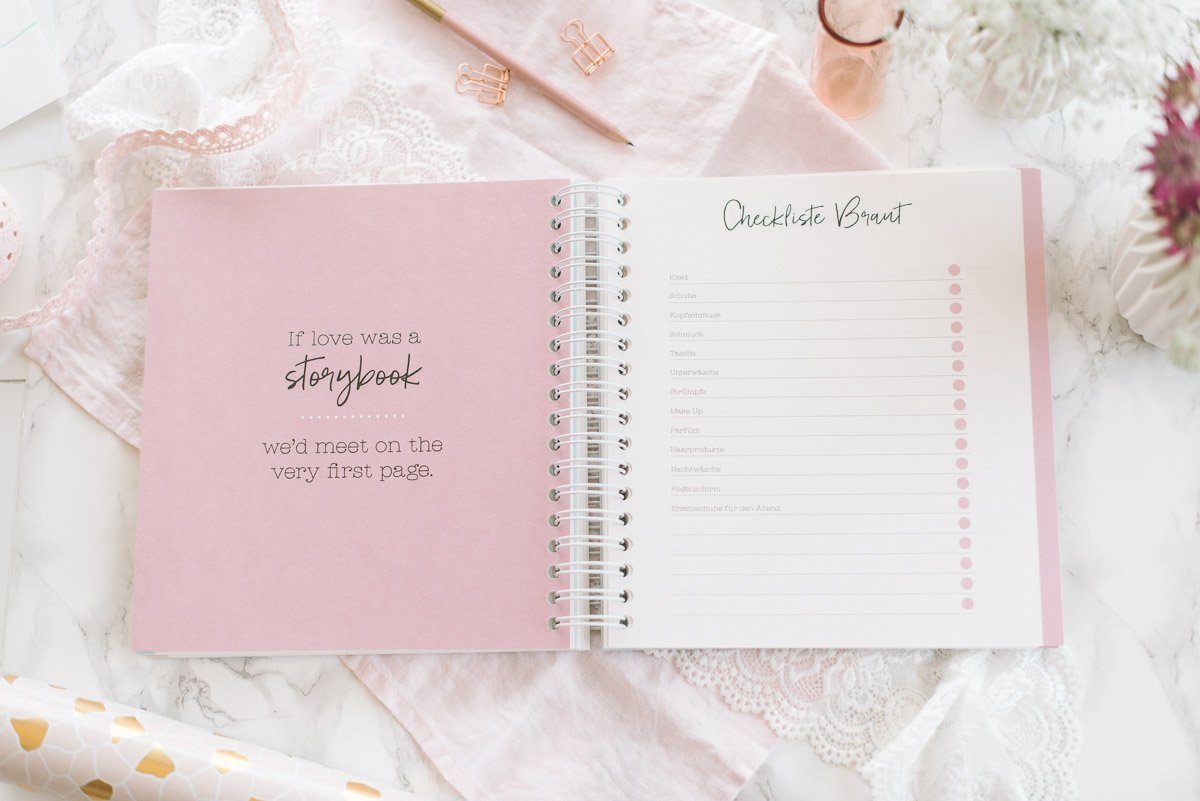 If love was a
storybook
we'd meet on the
very first page.
Checkliste Braut
Kleid
Schuhe
Kopfschmuck
Schmuck
Tasche
Unterwäsche
Strümpfe
Make Up
Parfüm
Haarprodukte
Nachtwäsche
Regenschirm
Ersatzschuhe für den Abend